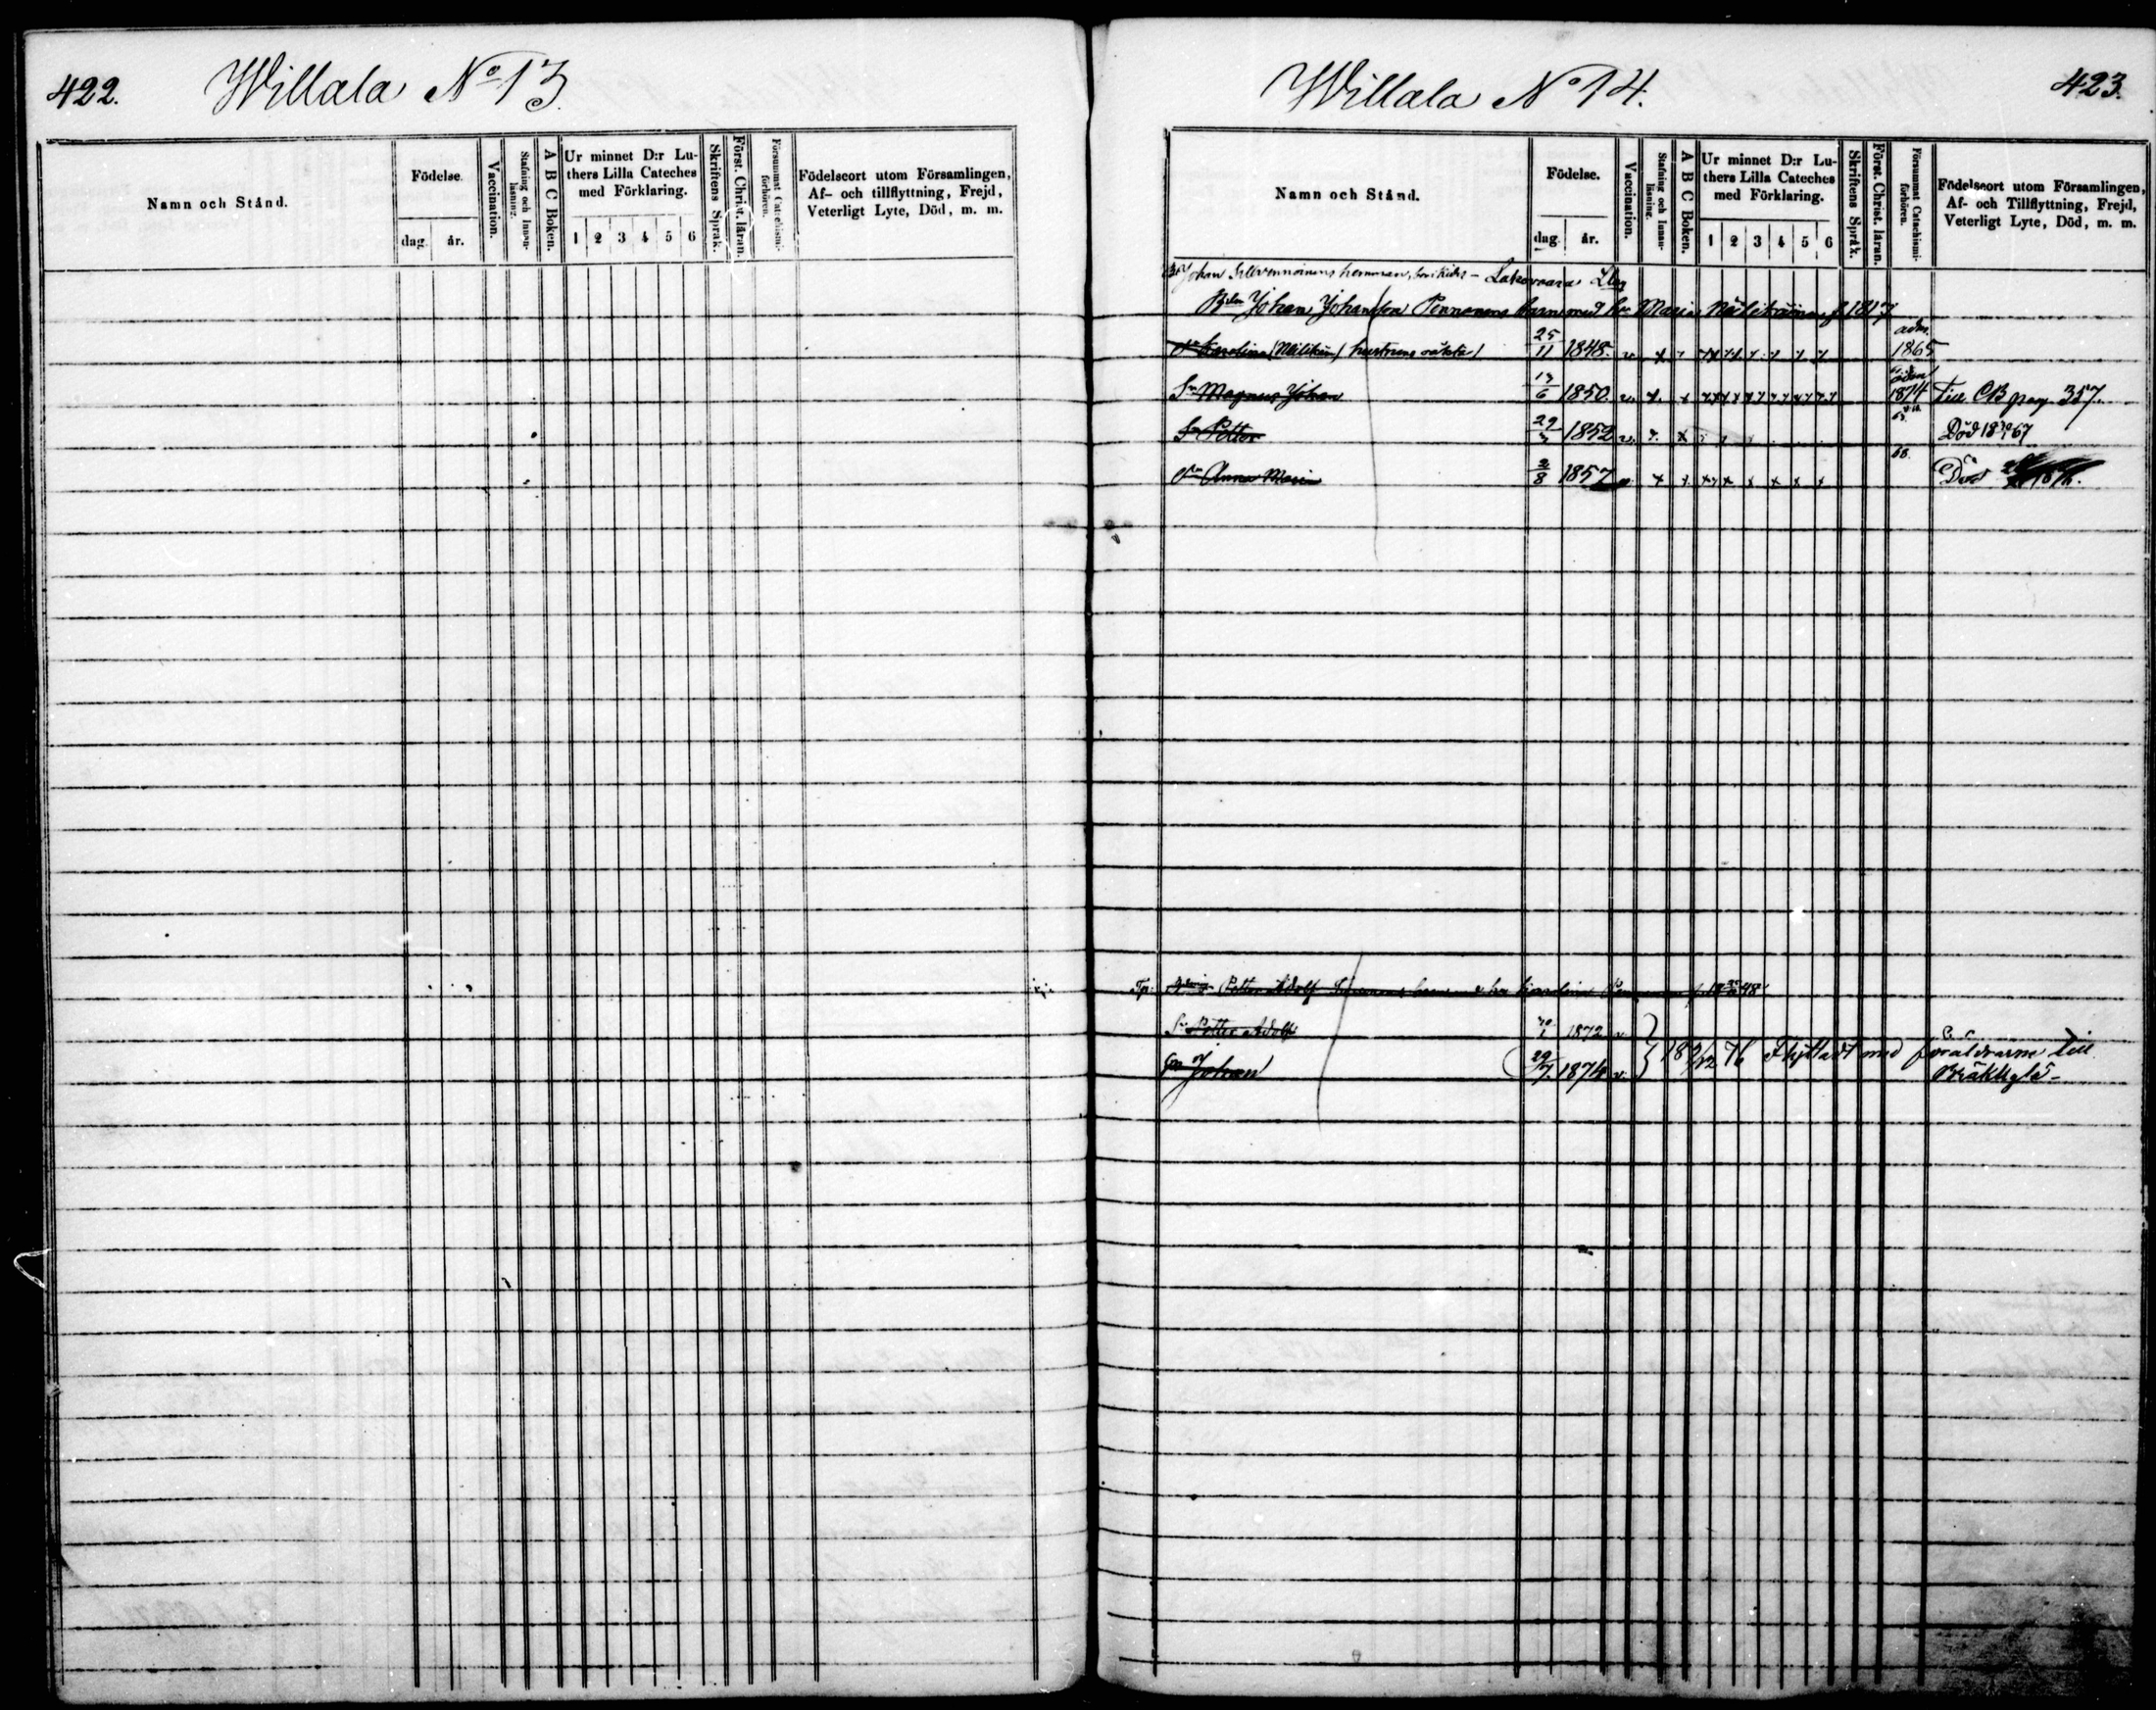 422.
Willala No 13
Namn och Stånd.
Födelse.
dag. år.
Vaccination.
Stafning och Innanläsning.
A B C Boken.
Ur minnet D:r Luthers Lilla Cateches med Förklaring.
1 2 3 4 5 6
Skriftens Språk.
Först. Christ. läran.
Försummat Catechismiförhören.
Födelseort utom Församlingen,
Af- och tillflyttning, Frejd,
Veterligt Lyte, Död, m. m.
Willala No 14.
423.
Namn och Stånd.
Födelse.
dag. år.
Vaccination.
Stafning och Innanläsning.
A B C Boken.
Ur minnet D:r Luthers Lilla Cateches med Förklaring.
1 2 3 4 5 6
Skriftens Språk.
Först. Christ. läran.
Försummat Catechismiförhören.
Födelseort utom Församlingen,
Af- och Tillflyttning, Frejd,
Veterligt Lyte, Död, m. m.
Johan hemman
Johan Johansson Pennanens barn med Maria f 1817
Karolina hustruns oäkta 25/11 1848. v x adm. 1865
Sn Magnus Johan 13/6 1850. v. x 1874 Till CB pag. 357.
Sn Petter 29/3 1852 v. x Död 67
Anna Maria 2/8 1857 v x 68. Död
Petter Adolf barn Karolina 48
Sn Petter Adolf 1872 v
Sn Johan 29/7 1874 v. 76 Flyttadt med föräldrarne till
Bräkkylä